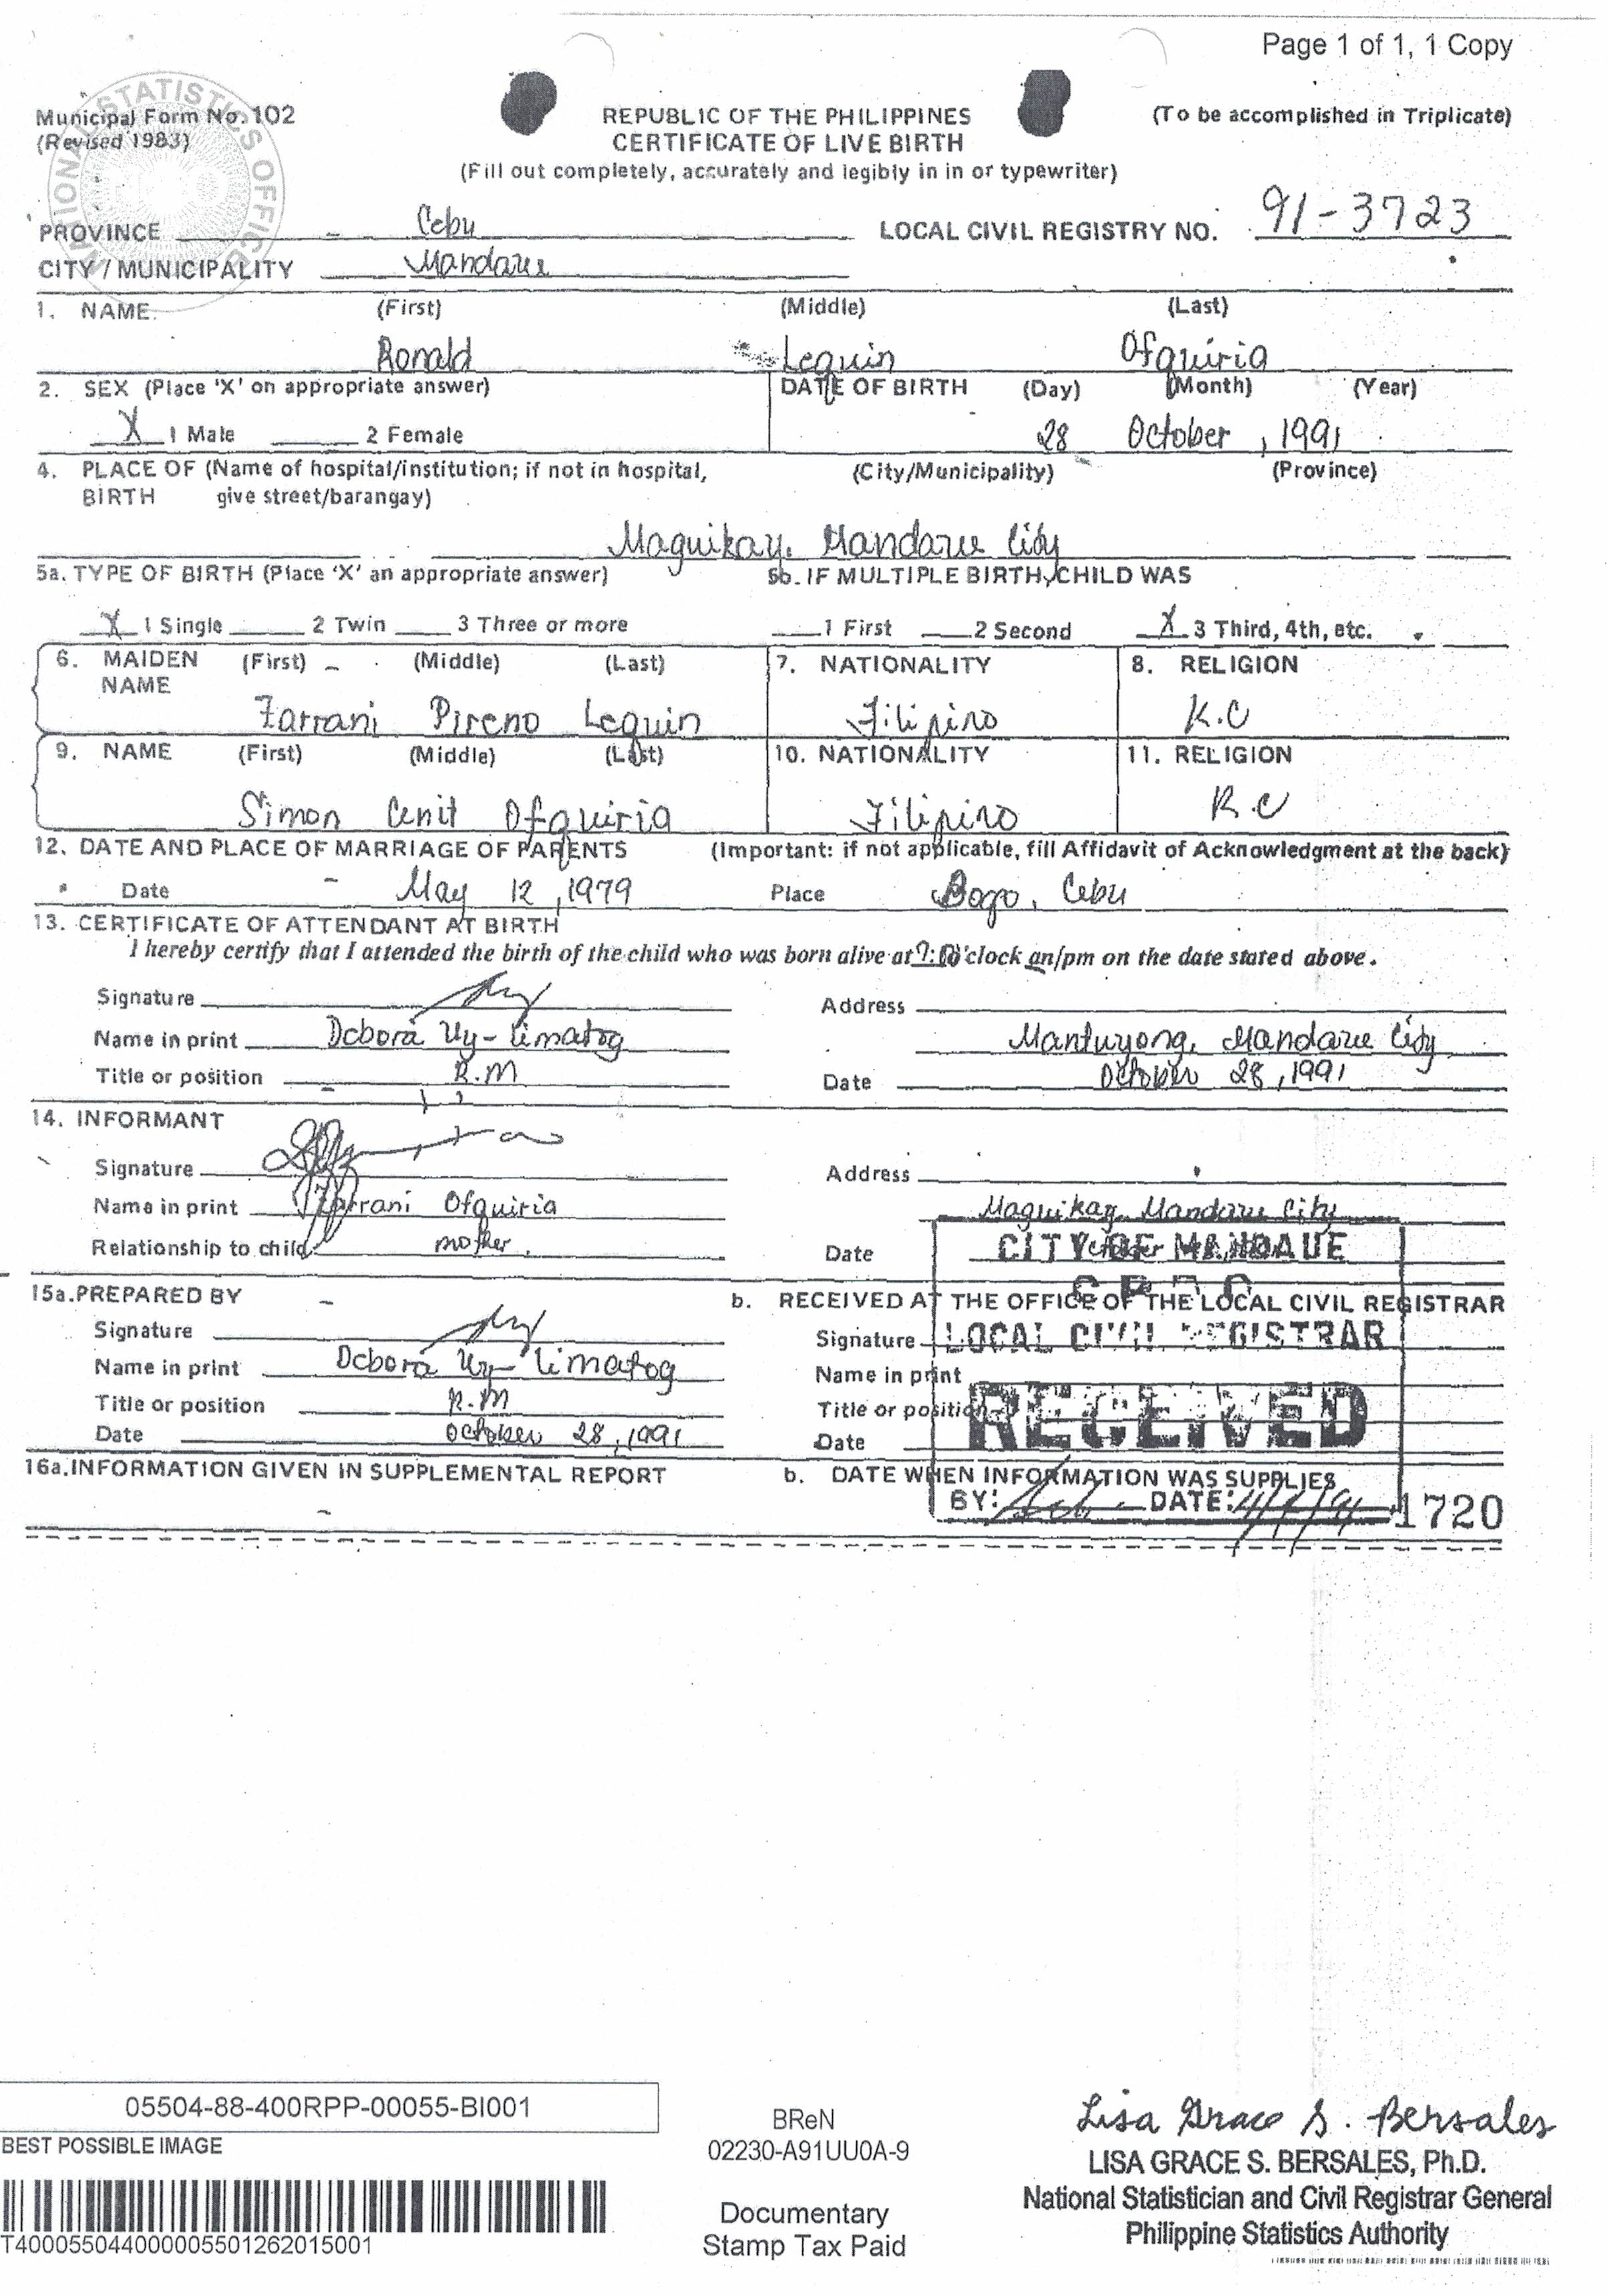 Page 1 of 1, 1 Copy
NATIONAL STATISTICS OFFICE
Municipal Form No. 102
(Revised 1983)
REPUBLIC OF THE PHILIPPINES
CERTIFICATE OF LIVE BIRTH
(Fill out completely, accurately and legibly in in or typewriter)
(To be accomplished in Triplicate)
PROVINCE Cebu LOCAL CIVIL REGISTRY NO. 91-3723
CITY / MUNICIPALITY Mandaue
1. NAME. (First) (Middle) (Last)
Ronald Lequin Ofquiria
2. SEX (Place 'X' on appropriate answer) DATE OF BIRTH (Day) (Month) (Year)
X 1 Male 2 Female 28 October, 1991
4. PLACE OF (Name of hospital/institution; if not in hospital, (City/Municipality) (Province)
BIRTH give street/barangay)
Maguikay, Mandaue City
5a. TYPE OF BIRTH (Place 'X' an appropriate answer) 5b. IF MULTIPLE BIRTH, CHILD WAS
X 1 Single 2 Twin 3 Three or more 1 First 2 Second X 3 Third, 4th, etc.
6. MAIDEN (First) (Middle) (Last) 7. NATIONALITY 8. RELIGION
NAME
Zarrani Pireno Lequin Filipino R.C
9. NAME (First) (Middle) (Last) 10. NATIONALITY 11. RELIGION
Simon Cenit Ofquiria Filipino R.C
12. DATE AND PLACE OF MARRIAGE OF PARENTS (Important: if not applicable, fill Affidavit of Acknowledgment at the back)
Date May 12, 1979 Place Bogo, Cebu
13. CERTIFICATE OF ATTENDANT AT BIRTH
I hereby certify that I attended the birth of the child who was born alive at o'clock an/pm on the date stated above.
Signature Address
Name in print Debora Uy-Limatog Mantuyong, Mandaue City
Title or position R.M Date October 28, 1991
14. INFORMANT
Signature Address
Name in print Zarrani Ofquiria Maguikay, Mandaue City
Relationship to child mother Date
CITY OF MANDAUE
15a. PREPARED BY b. RECEIVED AT THE OFFICE OF THE LOCAL CIVIL REGISTRAR
Signature Signature LOCAL CIVIL REGISTRAR
Name in print Debora Uy-Limatog Name in print
Title or position R.M Title or position RECEIVED
Date October 28, 1991 Date
16a. INFORMATION GIVEN IN SUPPLEMENTAL REPORT b. DATE WHEN INFORMATION WAS SUPPLIES
BY: DATE: 1720
05504-88-400RPP-00055-BI001
BEST POSSIBLE IMAGE
T400055044000005501262015001
BReN
02230-A91UU0A-9
Documentary
Stamp Tax Paid
Lisa Grace S. Bersales
LISA GRACE S. BERSALES, Ph.D.
National Statistician and Civil Registrar General
Philippine Statistics Authority